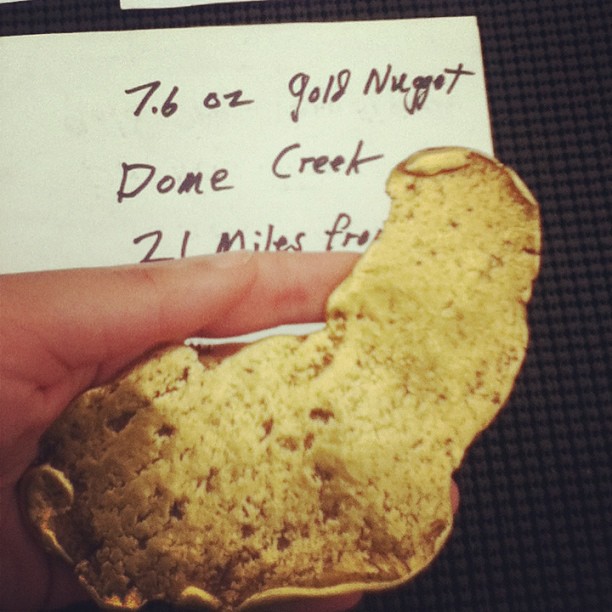 7.6 oz Gold Nugget
Dome Creek
21 Miles from